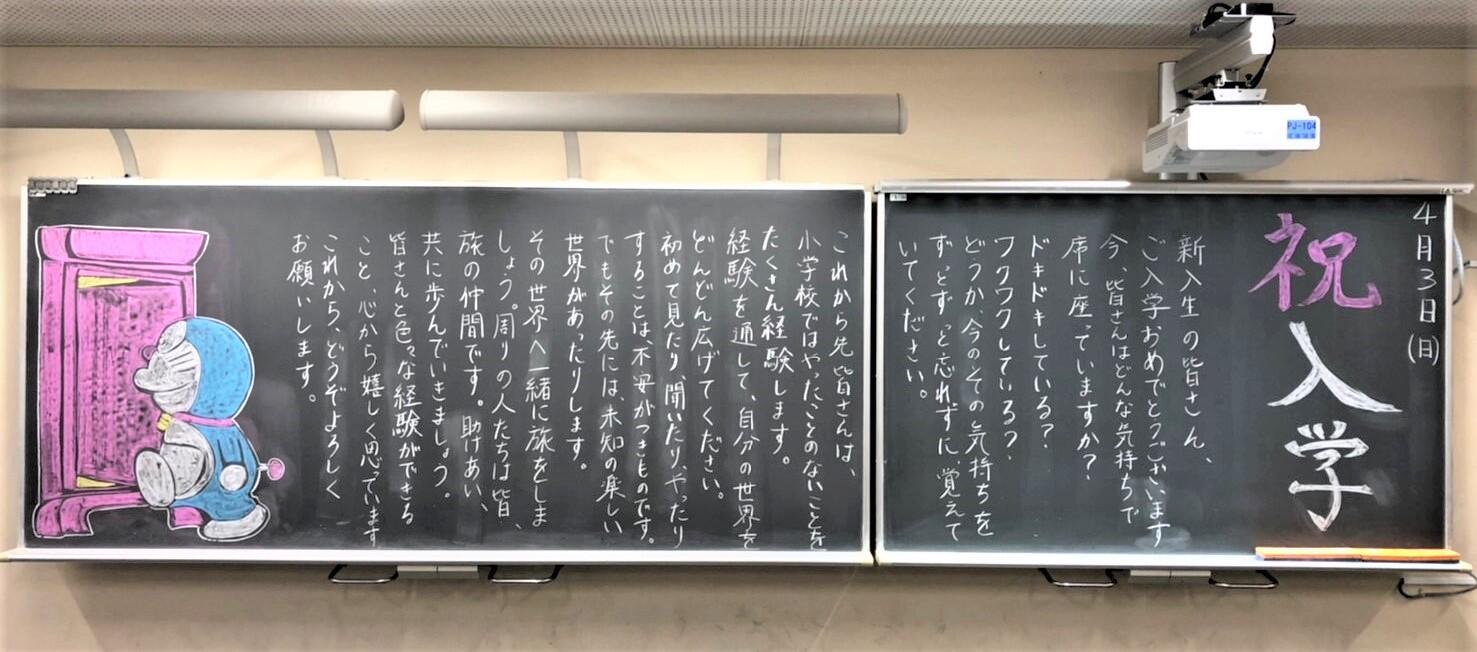 4月3日(日)
祝入学
新入生の皆さん、
ご入学おめでとうございます
今、皆さんはどんな気持ちで
席に座っていますか？
ドキドキしている？
ワクワクしている？
どうか、今のその気持ちを
ずっとずっと忘れずに覚えて
いてください。
これから先皆さんは、
小学校ではやったことのないことを
たくさん経験します。
経験を通して、自分の世界を
どんどん広げてください。
初めて見たり、聞いたり、やったり
することは、不安がつきものです。
でもその先には、未知の楽しい
世界があったりします。
その世界へ一緒に旅をしま
しょう。周りの人たちは皆、
旅の仲間です。助けあい、
共に歩んでいきましょう。
皆さんと色々な経験ができる
こと、心から嬉しく思っています
これから、どうぞよろしく
お願いします。
PJ-104